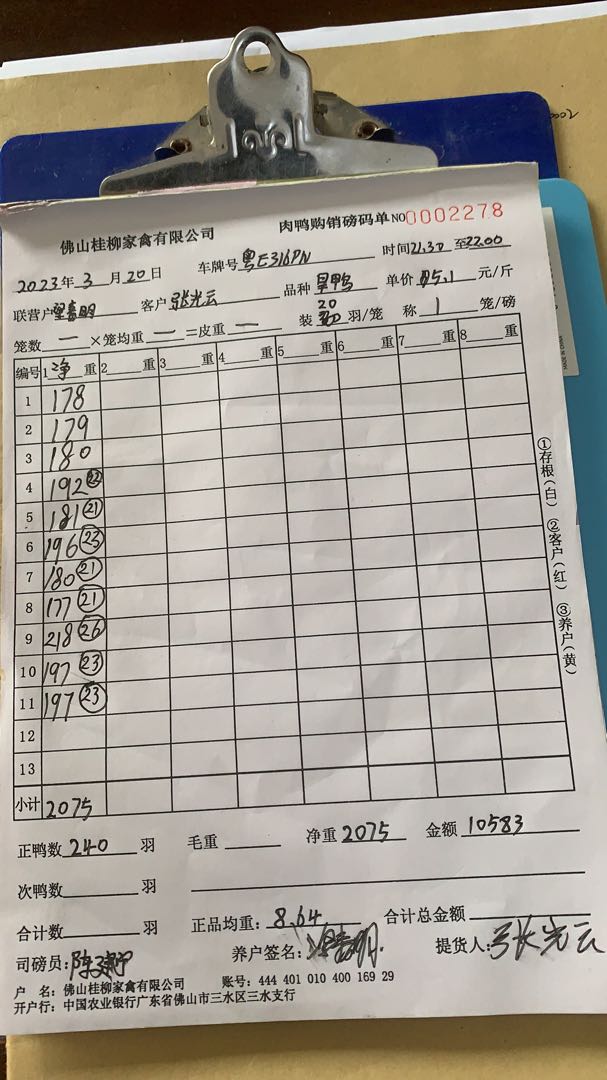 佛山桂柳家禽有限公司 肉鸭购销磅码单 NO0002278
2023年 3 月 20 日 车牌号 粤E316PN 时间 21.30 至 22.00
联营户 客户 张光云 品种 旱鸭 单价 5.1 元/斤
笼数 一 ×笼均重 一 =皮重 一 装 20 羽/笼 称 1 笼/磅
编号 1 净 重 2 重 3 重 4 重 5 重 6 重 7 重 8 重
1 178
2 179
3 180
4 192 22
5 181 21
6 196 23
7 180 21
8 177 21
9 218 26
10 197 23
11 197 23
12
13
小计 2075
①存根(白) ②客户(红) ③养户(黄)
正鸭数 240 羽 毛重 净重 2075 金额 10583
次鸭数 羽
合计数 羽 正品均重: 8.64 合计总金额
司磅员: 养户签名: 提货人: 张光云
户 名: 佛山桂柳家禽有限公司 账号: 444 401 010 400 169 29
开户行: 中国农业银行广东省佛山市三水区三水支行